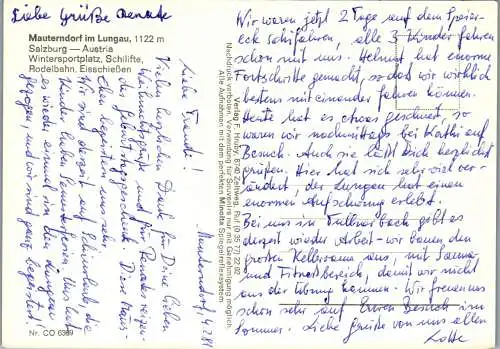 Liebe Grüße Renate
Mauterndorf im Lungau, 1122 m
Salzburg — Austria
Wintersportplatz, Schilifte,
Rodelbahn, Eisschießen
Mauterndorf, 4.2.81
Liebe Freunde!
Vielen herzlichen Dank für Deine lieben
Weihnachtspost und für Renates reizen-
des Geburtstagsgeschenk. Diese Haus-
chen begeistern uns sehr.
Wir sind derzeit auf Schiurlaub, die
Kinder haben Semesterferien. Uns hat
es wieder einmal in den Lungau
gezogen, und wir sind ganz begeistert.
Nr. CO 6369
Verlag F. Knolly, 8740 Zeltweg, Ruf (0 35 77) 22 92
Nachdruck verboten. Verwendung für Souvenirs nur mit Genehmigung möglich.
Alle Aufnahmen mit dem perfekten Minolta Spiegelreflexsystem
Wir waren jetzt 2 Tage auf dem Speier-
eck schifahren, alle 3 Kinder fahren
schon mit uns. Helmut hat enorme
Fortschritte gemacht, sodaß wir wirklich
bestens miteinander fahren können.
Heute hat es etwas geschneit, so
waren wir nachmittags bei Käthi auf
Besuch. Auch sie läßt Dich herzlichst
grüßen. Hier hat sich sehr viel ver-
ändert, der Lungau hat einen
enormen Aufschwung erlebt.
Bei uns in Tullnerbach gibt es
derzeit wieder Arbeit - wir bauen den
großen Kellerraum aus, mit Sauna
und Fitnessbereich, damit wir nicht
aus der Übung kommen. Wir freuen uns
schon sehr auf Euren Besuch im
Sommer. Liebe Grüße von uns allen
Lotte